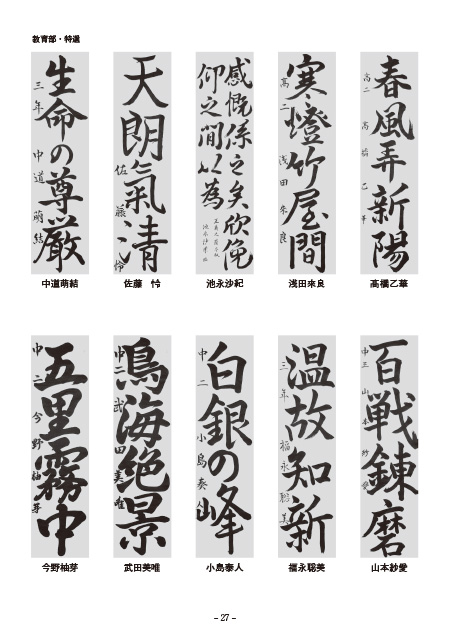 教育部・特選
春風弄新陽
高二 高橋乙華
高橋乙華
寒燈竹屋間
高二 浅田来良
浅田来良
感慨係之矣欣俛
仰之間以為
池永沙紀
天朗氣清
佐藤怜
佐藤 怜
生命の尊厳
三年 中道萌結
中道萌結
百戦錬磨
中三 山本紗愛
山本紗愛
温故知新
三年 福永聡美
福永聡美
白銀の峰
中二 小島奏
小島泰人
鳴海絶景
中二 武田美唯
武田美唯
五里霧中
中二 今野柚芽
今野柚芽
- 27 -